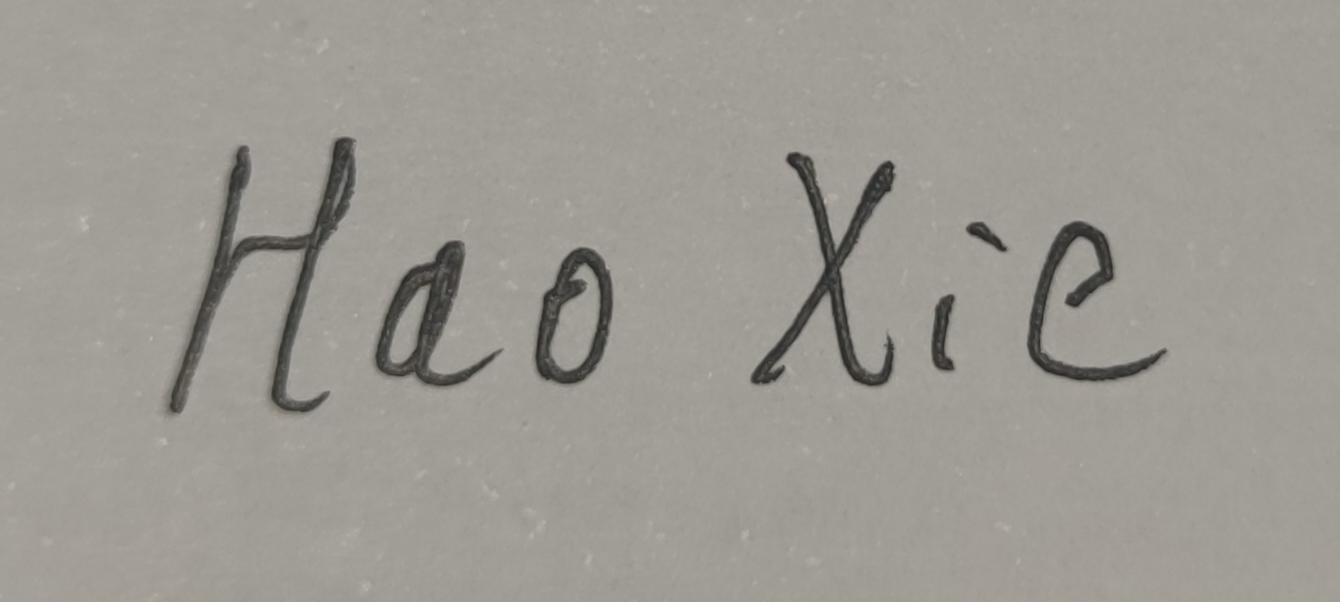 Hao Xie